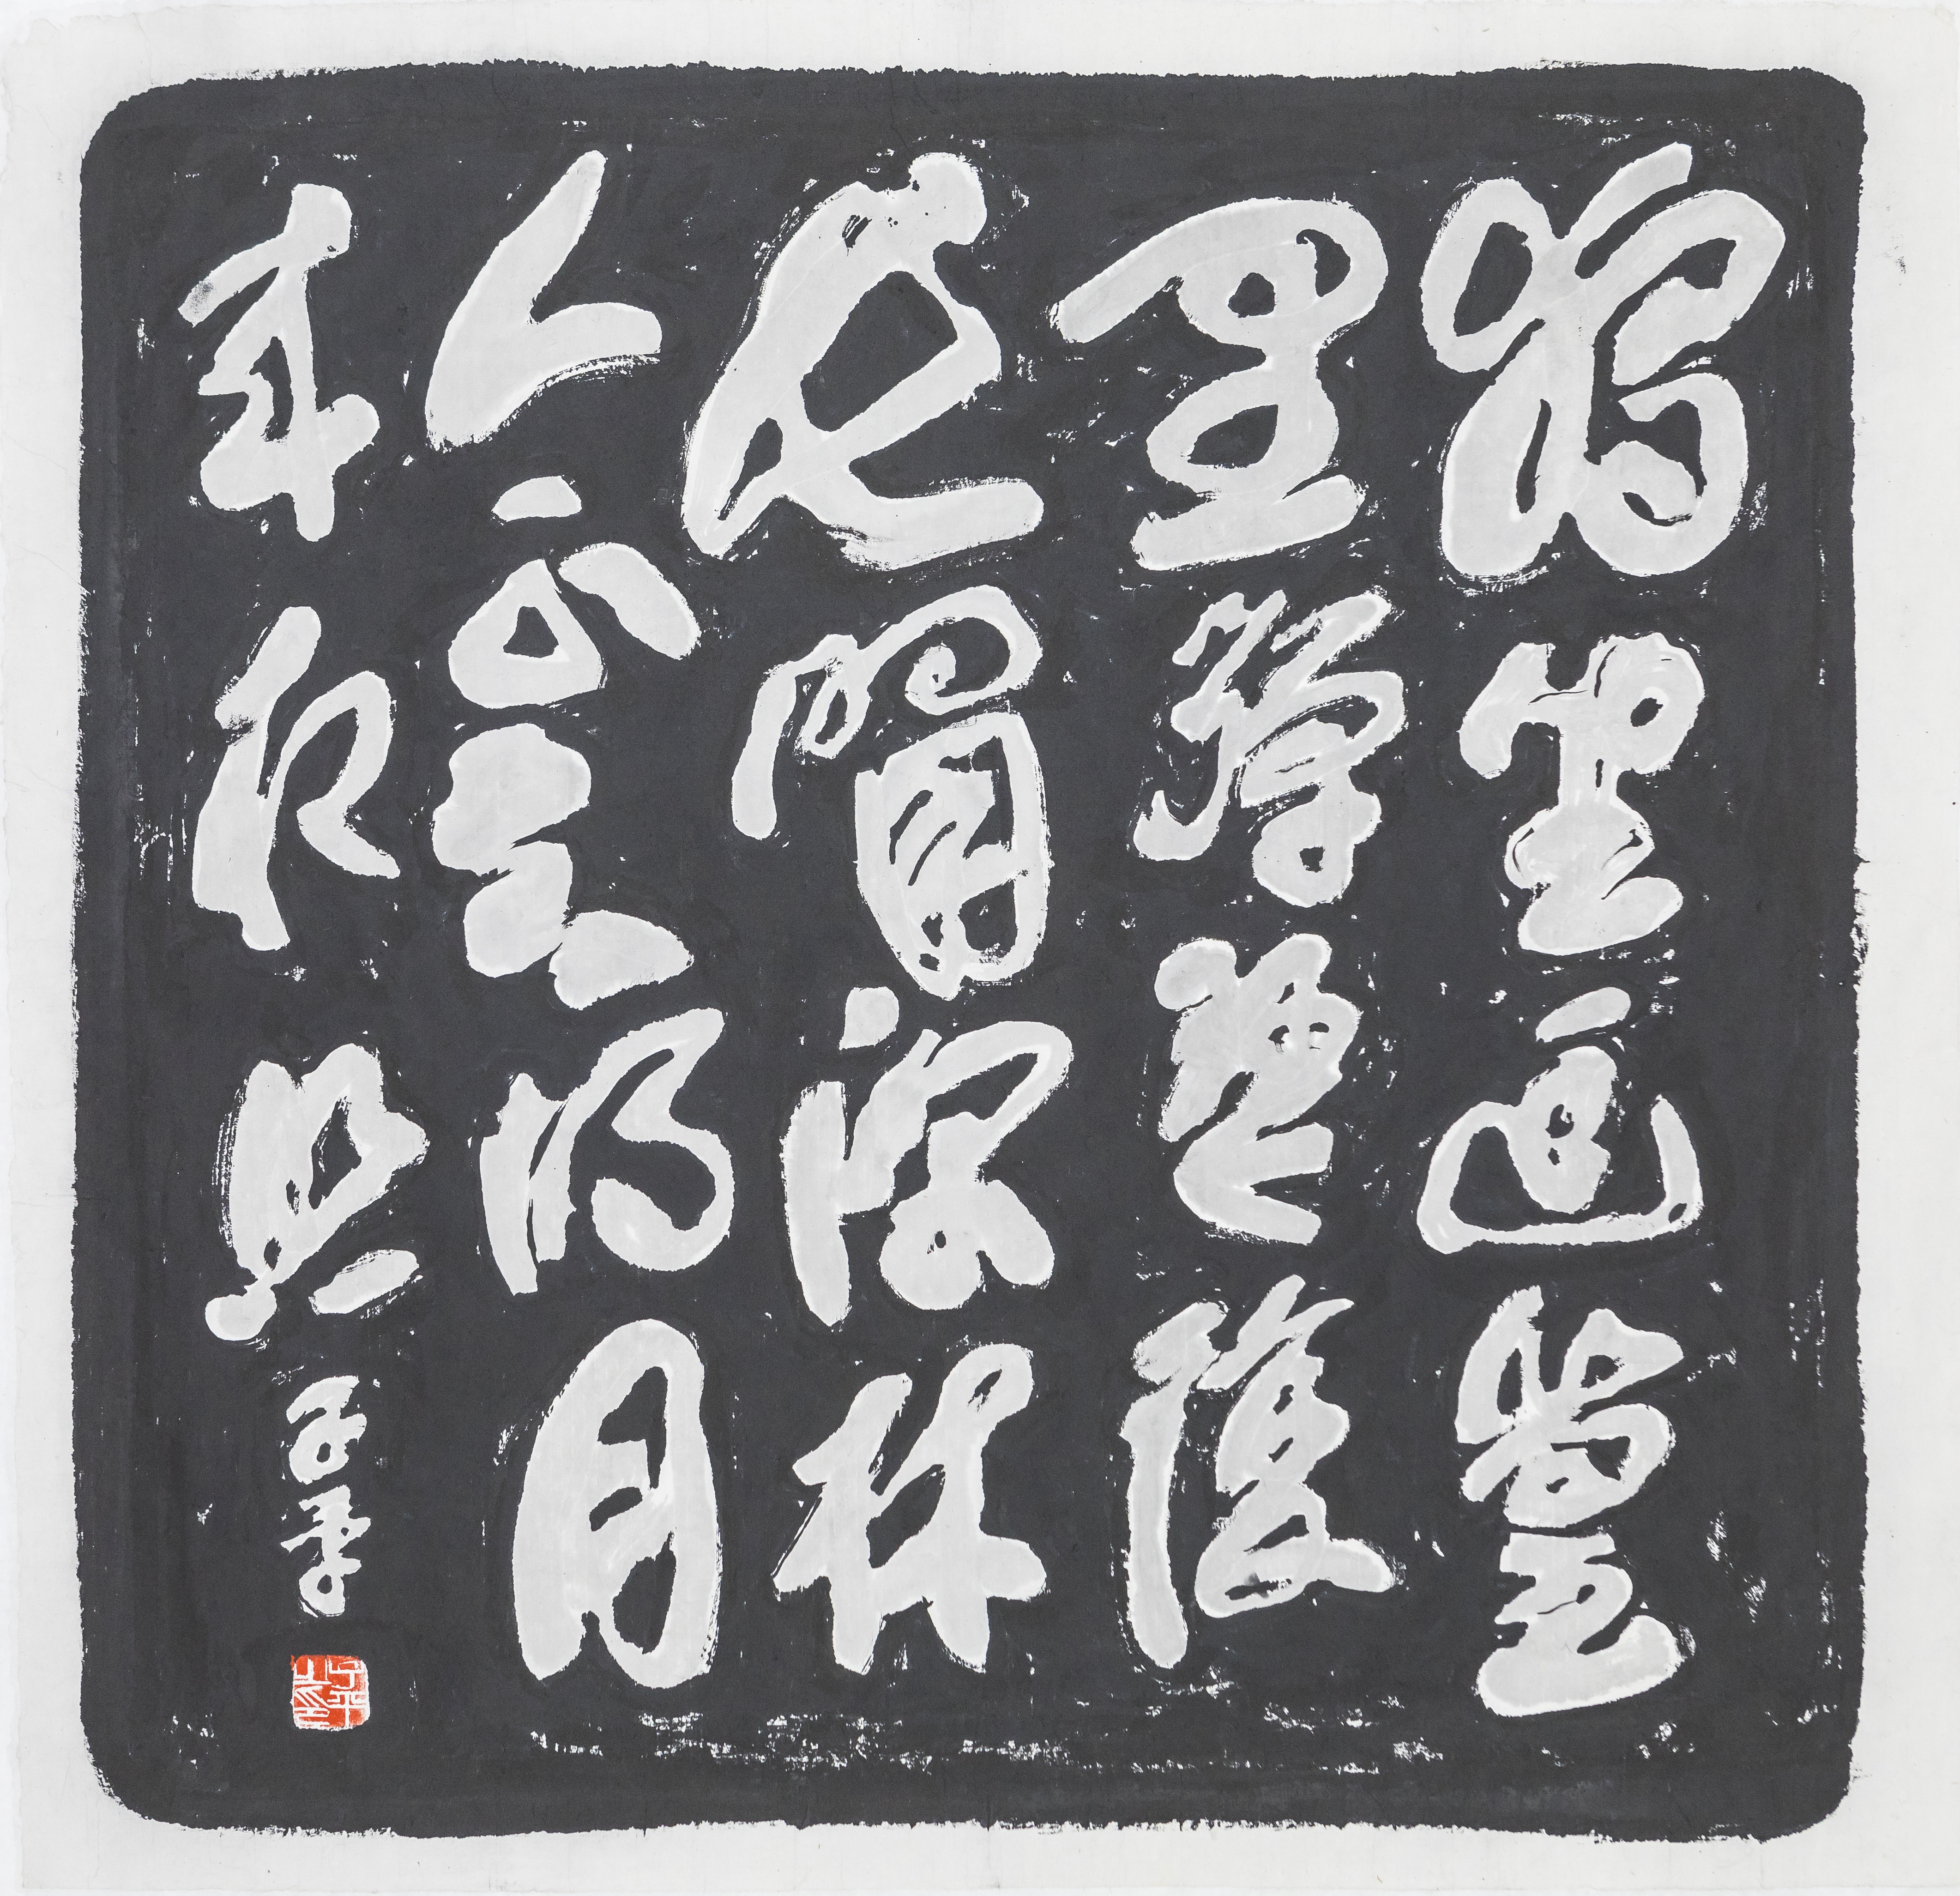 獨坐幽篁
里彈琴復
長嘯深林
人不知明月
来相照